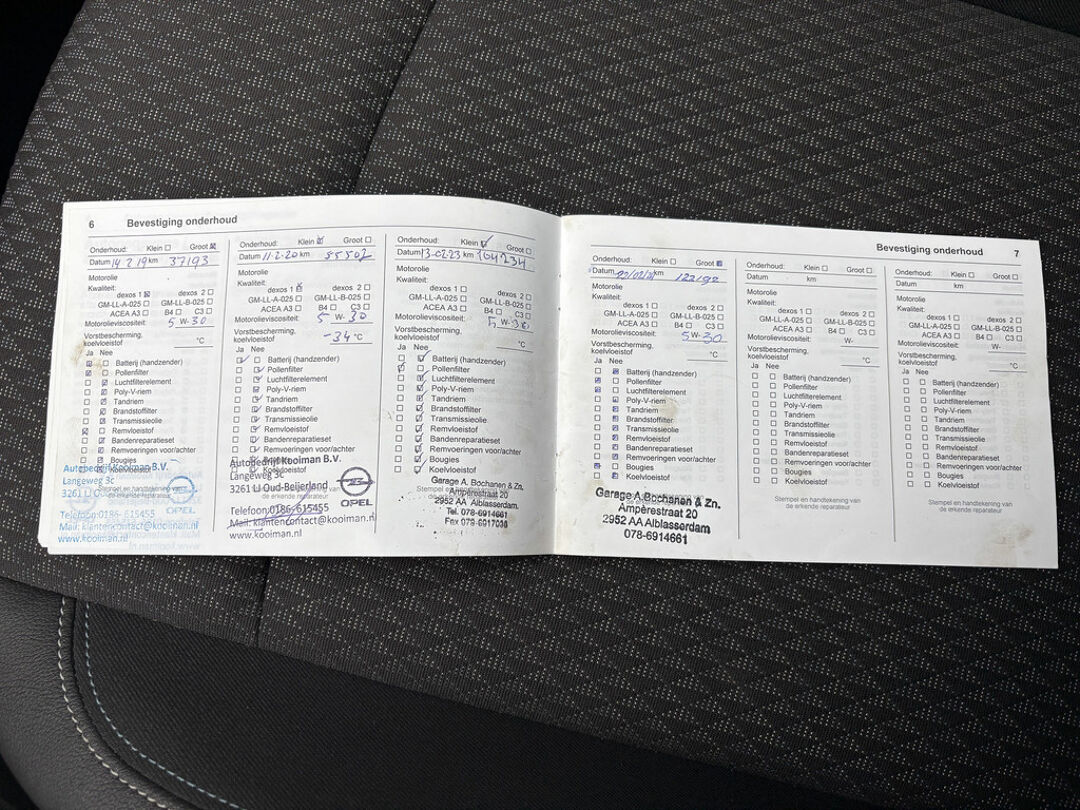 6 Bevestiging onderhoud
Onderhoud: Klein Groot
Datum 14 2 19 km 37193
Motorolie
Kwaliteit:
dexos 1 dexos 2
GM-LL-A-025 GM-LL-B-025
ACEA A3 B4 C3
Motorolieviscositeit: 5 W- 30
Vorstbescherming,
koelvloeistof °C
Ja Nee
Batterij (handzender)
Pollenfilter
Luchtfilterelement
Poly-V-riem
Tandriem
Brandstoffilter
Transmissieolie
Remvloeistof
Bandenreparatieset
Remvoeringen voor/achter
Bougies
Koelvloeistof
Autobedrijf Kooiman B.V.
Langeweg 3c
3261 LJ
de erkende reparateur
Telefoon:0186-615455
Mail: klantencontact@kooiman.nl
www.kooiman.nl
Onderhoud: Klein Groot
Datum 11-2-20 km 55502
Motorolie
Kwaliteit:
dexos 1 dexos 2
GM-LL-A-025 GM-LL-B-025
ACEA A3 B4 C3
Motorolieviscositeit: 5 W- 30
Vorstbescherming,
koelvloeistof -34 °C
Ja Nee
Batterij (handzender)
Pollenfilter
Luchtfilterelement
Poly-V-riem
Tandriem
Brandstoffilter
Transmissieolie
Remvloeistof
Bandenreparatieset
Remvoeringen voor/achter
Koelvloeistof
Autobedrijf Kooiman B.V.
Langeweg 3c
3261 LJ Oud-Beijerland
de erkende reparateur
OPEL
Telefoon:0186-615455
Mail: klantencontact@kooiman.nl
www.kooiman.nl
Onderhoud: Klein Groot
Datum 13-02-23 km 104234
Motorolie
Kwaliteit:
dexos 1 dexos 2
GM-LL-A-025 GM-LL-B-025
ACEA A3 B4 C3
Motorolieviscositeit: 5 W- 30
Vorstbescherming,
koelvloeistof °C
Ja Nee
Batterij (handzender)
Pollenfilter
Luchtfilterelement
Poly-V-riem
Tandriem
Brandstoffilter
Transmissieolie
Remvloeistof
Bandenreparatieset
Remvoeringen voor/achter
Bougies
Koelvloeistof
Garage A. Bochanen & Zn.
Ampèrestraat 20
2952 AA Alblasserdam
Tel. 078-6914661
Fax 078-6917038
Bevestiging onderhoud 7
Onderhoud: Klein Groot
Datum km
Motorolie
Kwaliteit:
dexos 1 dexos 2
GM-LL-A-025 GM-LL-B-025
ACEA A3 B4 C3
Motorolieviscositeit: 5 W- 30
Vorstbescherming,
koelvloeistof °C
Ja Nee
Batterij (handzender)
Pollenfilter
Luchtfilterelement
Poly-V-riem
Tandriem
Brandstoffilter
Transmissieolie
Remvloeistof
Bandenreparatieset
Remvoeringen voor/achter
Bougies
Koelvloeistof
Garage A. Bochanen & Zn.
Ampèrestraat 20
2952 AA Alblasserdam
078-6914661
Onderhoud: Klein Groot
Datum km
Motorolie
Kwaliteit:
dexos 1 dexos 2
GM-LL-A-025 GM-LL-B-025
ACEA A3 B4 C3
Motorolieviscositeit: W-
Vorstbescherming,
koelvloeistof °C
Ja Nee
Batterij (handzender)
Pollenfilter
Luchtfilterelement
Poly-V-riem
Tandriem
Brandstoffilter
Transmissieolie
Remvloeistof
Bandenreparatieset
Remvoeringen voor/achter
Bougies
Koelvloeistof
Stempel en handtekening van
de erkende reparateur
Onderhoud: Klein Groot
Datum km
Motorolie
Kwaliteit:
dexos 1 dexos 2
GM-LL-A-025 GM-LL-B-025
ACEA A3 B4 C3
Motorolieviscositeit: W-
Vorstbescherming,
koelvloeistof °C
Ja Nee
Batterij (handzender)
Pollenfilter
Luchtfilterelement
Poly-V-riem
Tandriem
Brandstoffilter
Transmissieolie
Remvloeistof
Bandenreparatieset
Remvoeringen voor/achter
Bougies
Koelvloeistof
Stempel en handtekening van
de erkende reparateur